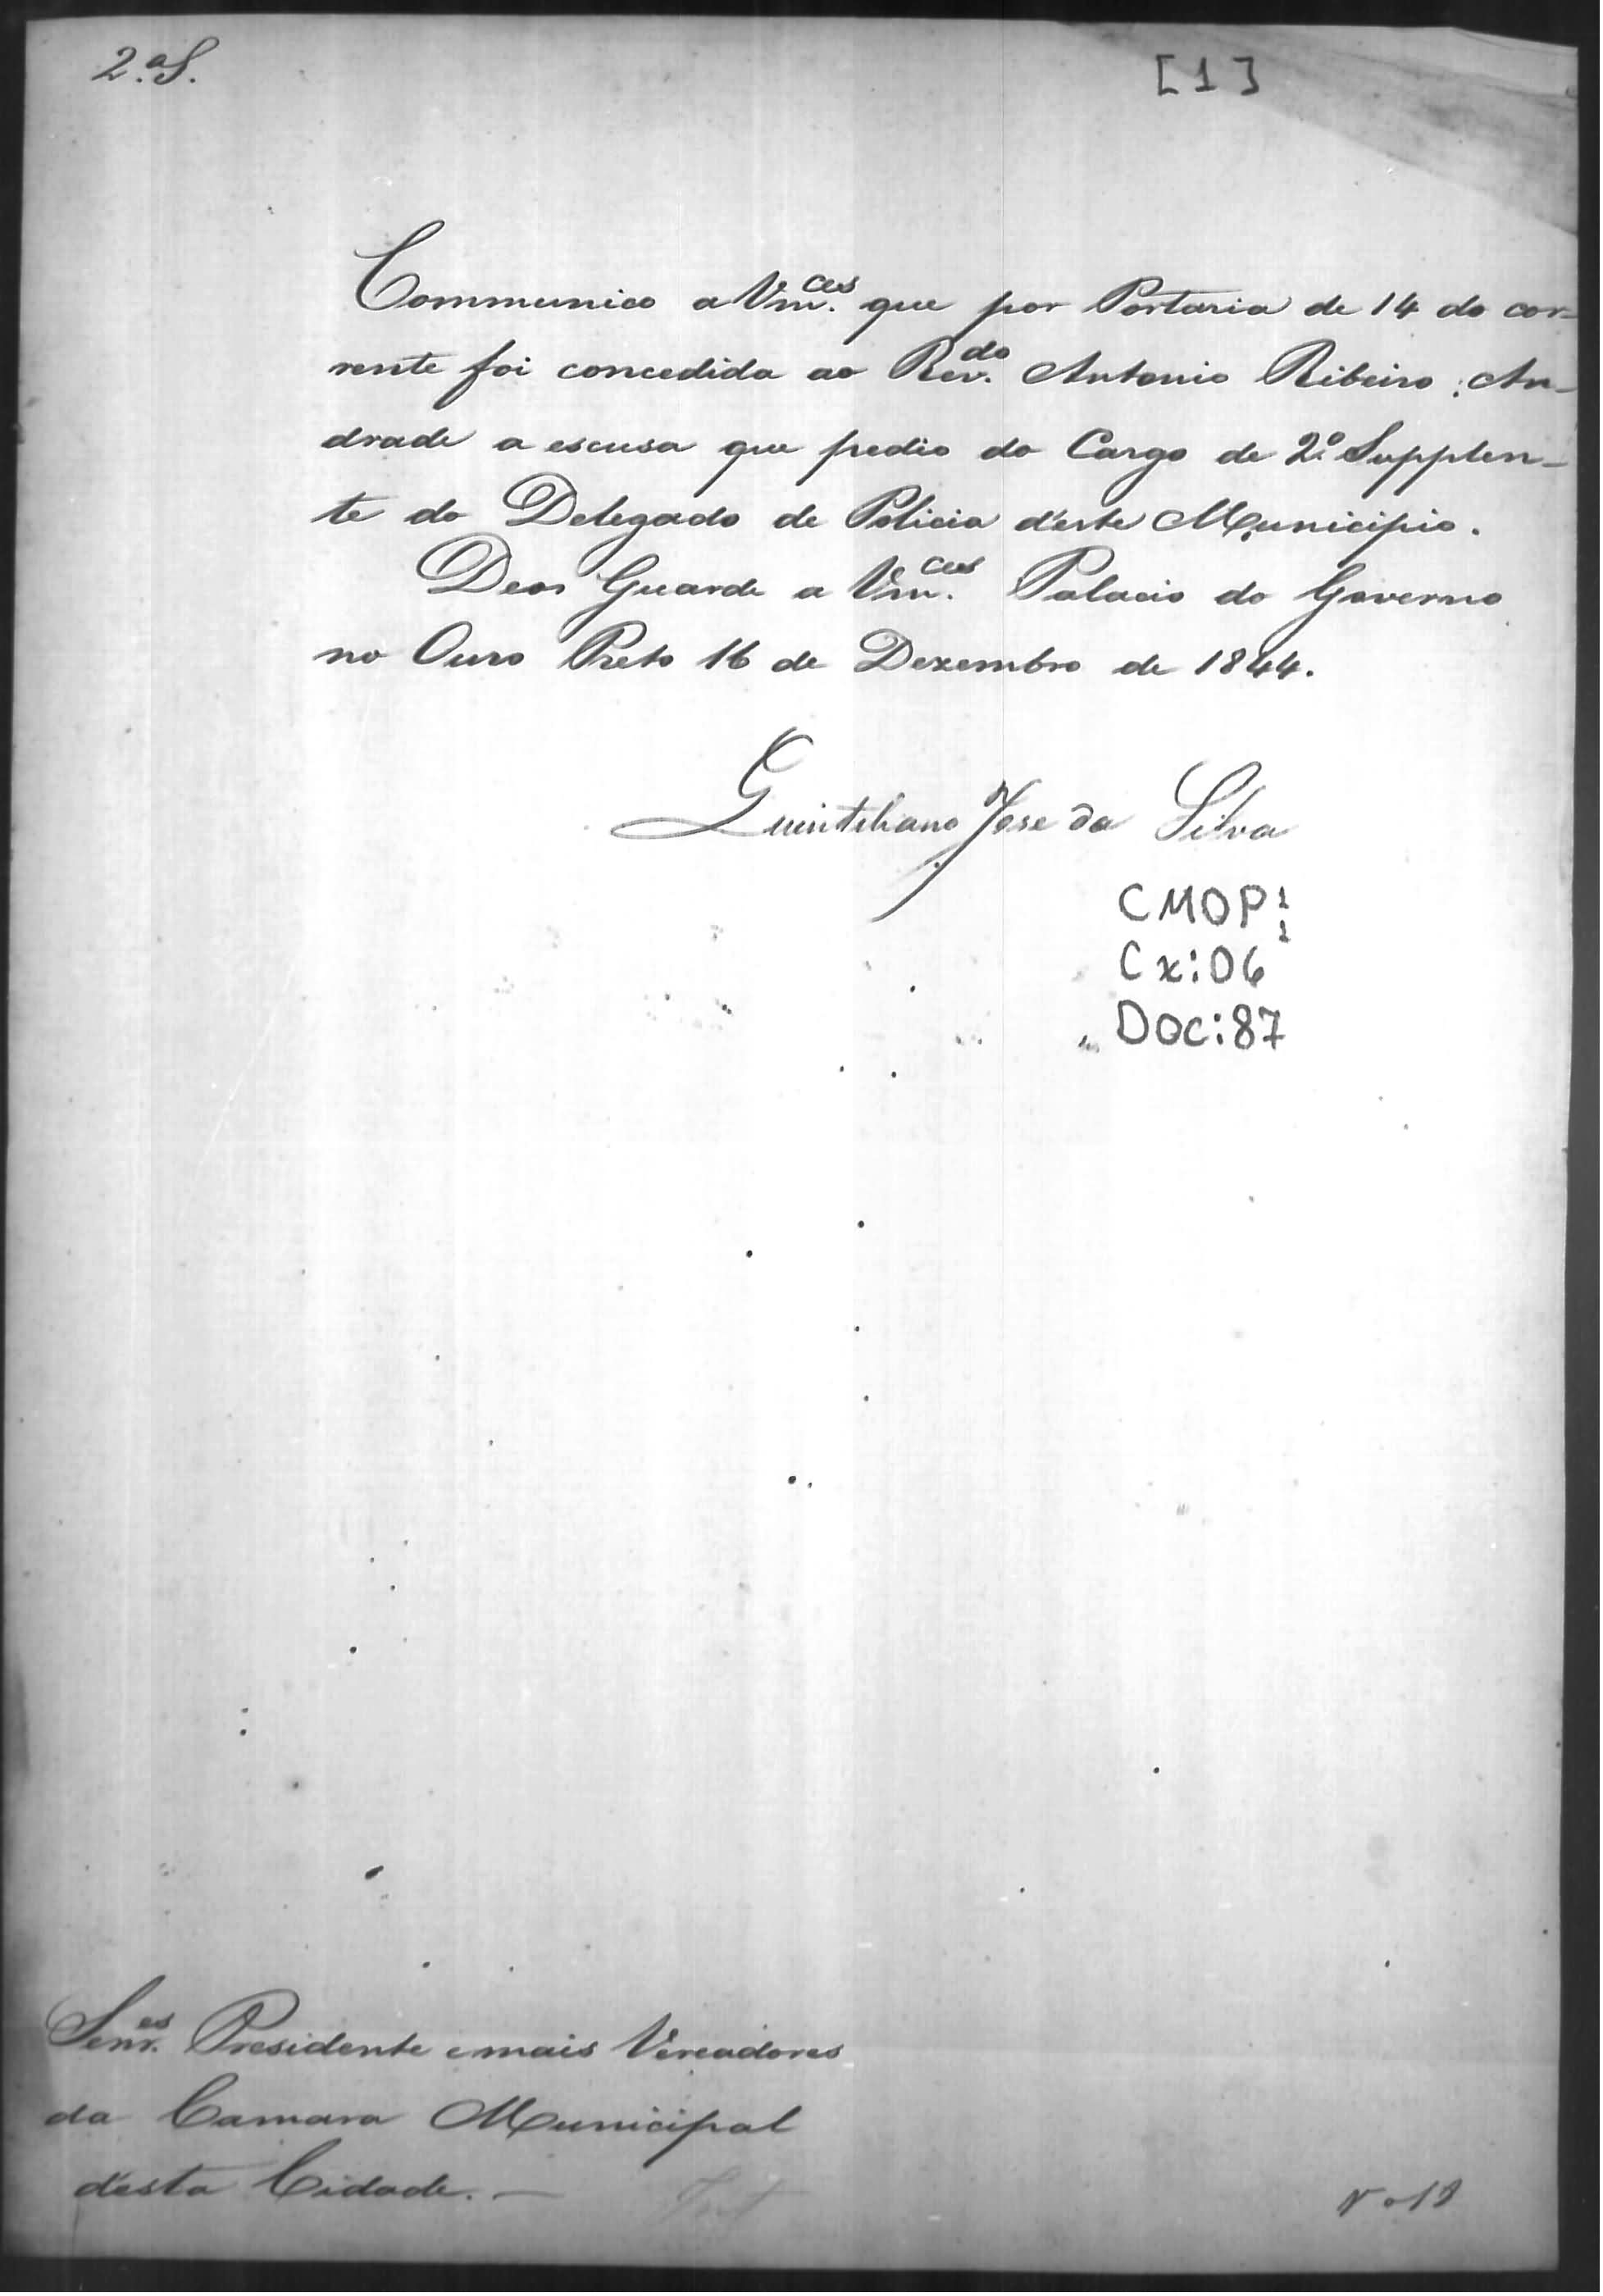 2.ª S.
[1]
Communico a Vm.ces que por Portaria de 14 do cor-
rente foi concedida ao Rev.do Antonio Ribeiro An-
drade a escusa que pedio do Cargo de 2.º Supplen-
te do Delegado de Policia d'este Municipio.
Deos Guarde a Vm.ces Palacio do Governo
no Ouro Preto 16 de Dezembro de 1844.
Quintiliano Jose da Silva
CMOP
Cx: 06
Doc: 87
Senr.es Presidente e mais Vereadores
da Camara Municipal
d'esta Cidade. —